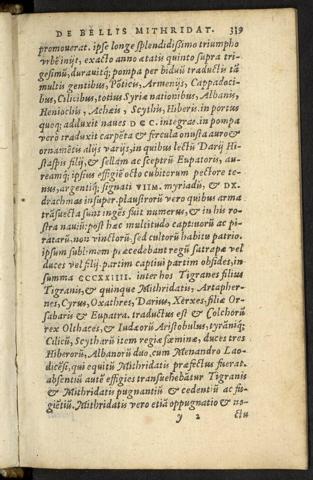 DE BELLIS MITHRIDAT. 339
promouerat. ipse longe splendidißimo triumpho
vrbē inijt, exacto anno ætatis quinto supra tri-
gesimū, durauitq́; pompa per biduū traductis tā
multis gentibus, Pōticis, Armenijs, Cappadoci-
bus, Cilicibus, totius Syriæ nationibus, Albanis,
Heniochis, Achæis, Scythis, Hiberis. in portus
quoq; adduxit naues DCC. integras. in pompa
verò traduxit carpēta & fercula onusta auro &
ornamētis alijs varijs, in quibus lectū Darij Hi-
staspis filij, & sellam ac sceptrū Eupatoris, au-
reamq́; ipsius effigiē octo cubitorum pectore te-
nus, argentiq́; signati VIIM. myriadū, & DX.
drachmas insuper. plaustrorū verò quibus arma
trāsuecta sunt ingēs fuit numerus, & in his ro-
stra nauiū: post hæc multitudo captiuorū ac pi-
ratarū. non vinctorū. sed cultorū habitu patrio.
ipsum sublimem præcedebant regū satrapæ vel
duces vel filij. partim captiui partim obsides, in
summa CCCXXIIII. inter hos Tigranes filius
Tigranis, & quinque Mithridatis, Artapher-
nes, Cyrus, Oxathres, Darius, Xerxes, filiæ Or-
sabaris & Eupatra. traductus est & Colchorū
rex Olthaces, & Iudæorū Aristobulus, tyrāniq́;
Cilicū, Scytharū item regiæ fœminæ, duces tres
Hiberorū, Albanorū duo. cum Menandro Lao-
dicēse, qui equitū Mithridatis præfectus fuerat.
absentiū autē effigies transuehebātur Tigranis
& Mithridatis pugnantiū & cedentiū ac fu-
giētiū. Mithridatis vero etiā oppugnatio & no-
y 2 ctu